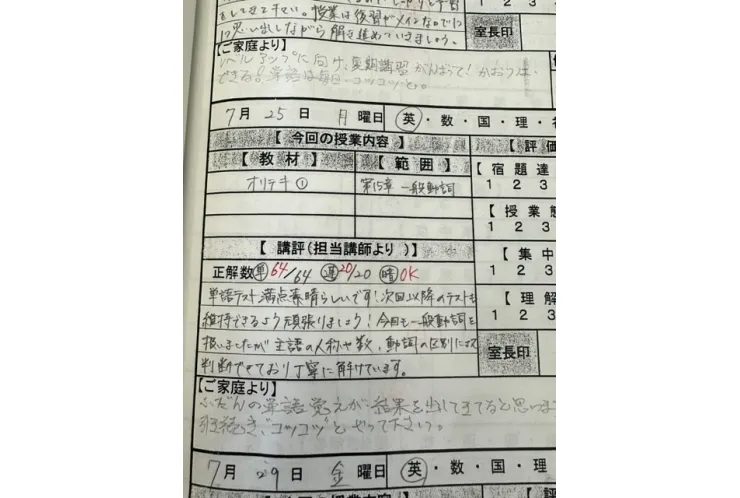 をして下さい。授業は復習がメインなので1つ
1つ思い出しながら解き進めていきましょう。
室長印
【ご家庭より】
レベルアップに向け、夏期講習がんばって!
できる!単語は毎日コツコツと。
7月25日 月曜日 英・数・国・理・社
【今回の授業内容】 【評価
【教材】 【範囲】 【宿題達
オリテキ① 第15章 一般動詞 1 2 3
【授業態
1 2 3
【講評(担当講師より)】 【集中
正解数 単 64/64 連 20/20 暗 OK 1 2 3
単語テスト満点素晴らしいです!次回以降のテストも 【理解
維持できるよう頑張りましょう!今回も一般動詞を 1 2 3
扱いましたが主語の人称や数、動詞の区別によく
判断できており丁寧に解けています。 室長印
【ご家庭より】
ふだんの単語覚えが、結果を出してきてると思いま
引き続き、"コツコツ"とやって下さい。
7月29日 金曜日 英・数・国・理